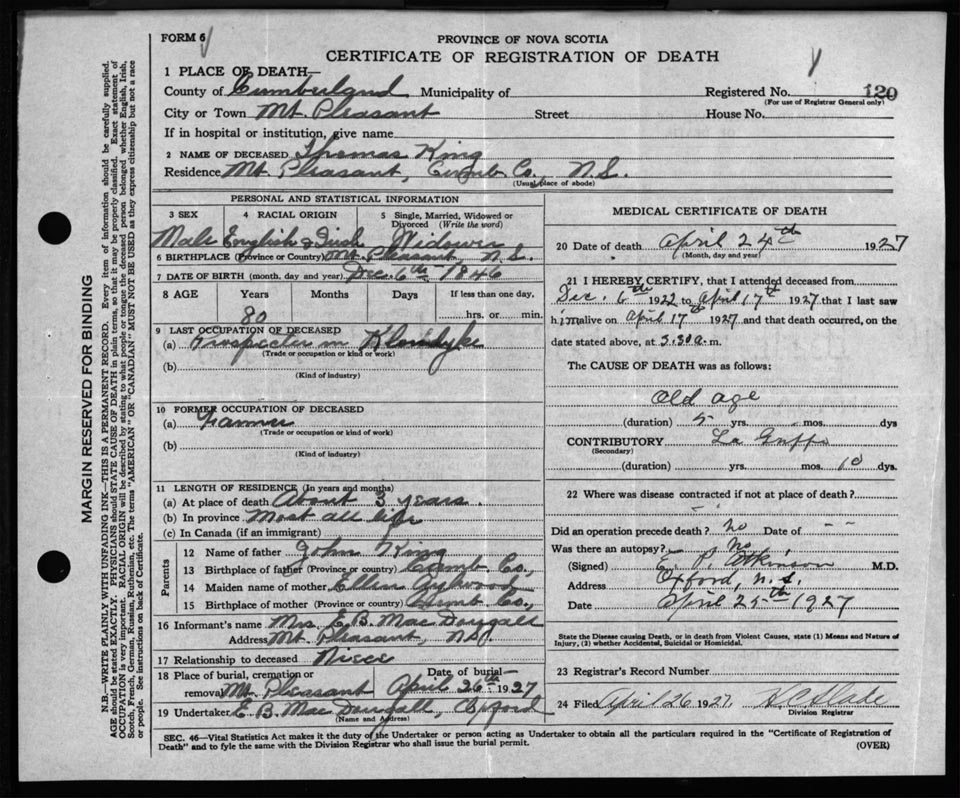 FORM 6
PROVINCE OF NOVA SCOTIA
CERTIFICATE OF REGISTRATION OF DEATH
1 PLACE OF DEATH—
County of Cumberland Municipality of Registered No. 120
(For use of Registrar General only)
City or Town Mt. Pleasant Street House No.
If in hospital or institution, give name
2 NAME OF DECEASED Thomas King
Residence Mt. Pleasant, Cumb Co., N.S.
(Usual place of abode)
PERSONAL AND STATISTICAL INFORMATION
3 SEX 4 RACIAL ORIGIN 5 Single, Married, Widowed or Divorced (Write the word)
Male English & Irish Widower
6 BIRTHPLACE (Province or Country) Mt. Pleasant, N.S.
7 DATE OF BIRTH (month, day and year) Dec. 6th 1846
8 AGE Years Months Days If less than one day,
80 hrs. or min.
9 LAST OCCUPATION OF DECEASED
(a) Prospecter in Klondyke
(Trade or occupation or kind or work)
(b)
(Kind of industry)
10 FORMER OCCUPATION OF DECEASED
(a) Farmer
(Trade or occupation or kind of work)
(b)
(Kind of industry)
11 LENGTH OF RESIDENCE (In years and months)
(a) At place of death About 3 years.
(b) In province Most all life
(c) In Canada (if an immigrant)
Parents
12 Name of father John King
13 Birthplace of father (Province or country) Cumb Co.,
14 Maiden name of mother Ellen
15 Birthplace of mother (Province or country) Cumb Co.,
16 Informant's name Mrs. E.B. MacDougall
Address Mt. Pleasant, N.S.
17 Relationship to deceased Niece
18 Place of burial, cremation or removal Mt. Pleasant Date of burial— April 26th 1927
19 Undertaker E. B. MacDougall, Oxford
(Name and Address)
MEDICAL CERTIFICATE OF DEATH
20 Date of death April 24th 1927
(Month, day and year)
21 I HEREBY CERTIFY, that I attended deceased from
Dec. 6th 1922 to April 17th 1927 that I last saw
him alive on April 17th 1927 and that death occurred, on the
date stated above, at 5.30 a.m.
The CAUSE OF DEATH was as follows:
Old age
(duration) 5 yrs. mos. dys
CONTRIBUTORY La Grippe
(Secondary)
(duration) yrs. mos. 10 dys.
22 Where was disease contracted if not at place of death?
Did an operation precede death? No Date of - -
Was there an autopsy? No
(Signed) E. P. Atkinson M.D.
Address Oxford, N.S.
Date April 25th 1927
State the Disease causing Death, or in death from Violent Causes, state (1) Means and Nature of
Injury, (2) whether Accidental, Suicidal or Homicidal.
23 Registrar's Record Number
24 Filed April 26 1927.
Division Registrar
SEC. 46—Vital Statistics Act makes it the duty of the Undertaker or person acting as Undertaker to obtain all the particulars required in the "Certificate of Registration of
Death" and to fyle the same with the Division Registrar who shall issue the burial permit. (OVER)
MARGIN RESERVED FOR BINDING
N.B.—WRITE PLAINLY WITH UNFADING INK—THIS IS A PERMANENT RECORD. Every item of information should be carefully supplied.
AGE should be stated EXACTLY. PHYSICIANS should STATE CAUSE OF DEATH in plain terms, so that it may be properly classified. Exact statement of
OCCUPATION is very important. RACIAL ORIGIN will be described by stating to what people or tongue the deceased person belonged whether English, Irish,
Scotch, French, German, Russian, Ruthenian, etc. The terms "AMERICAN" or "CANADIAN" MUST NOT BE USED as they express citizenship but not a race
or people. See instructions on back of Certificate.